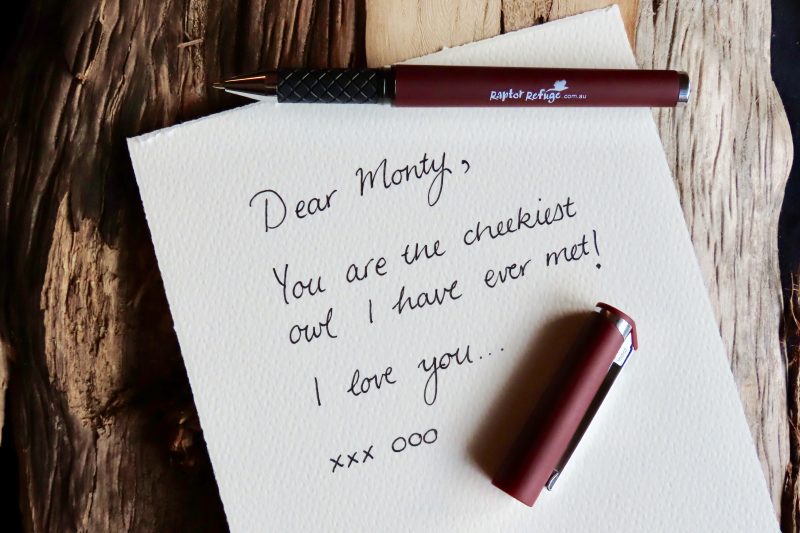 Raptor Refuge.com.au
Dear Monty,
You are the cheekiest
owl I have ever met!
I love you...
xxx ooo